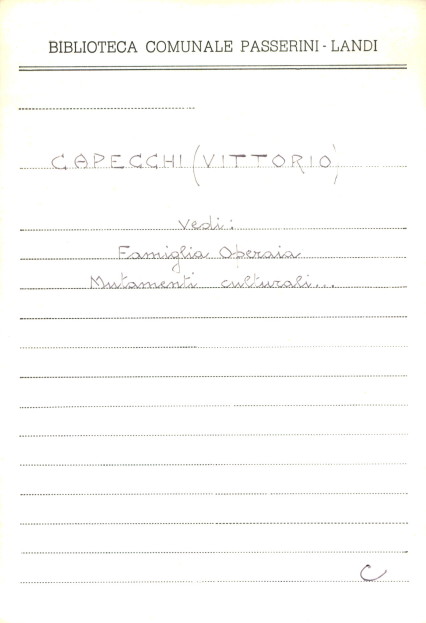 BIBLIOTECA COMUNALE PASSERINI - LANDI
CAPECCHI (VITTORIO)
Vedi:
Famiglia Operaia
Mutamenti culturali...
C